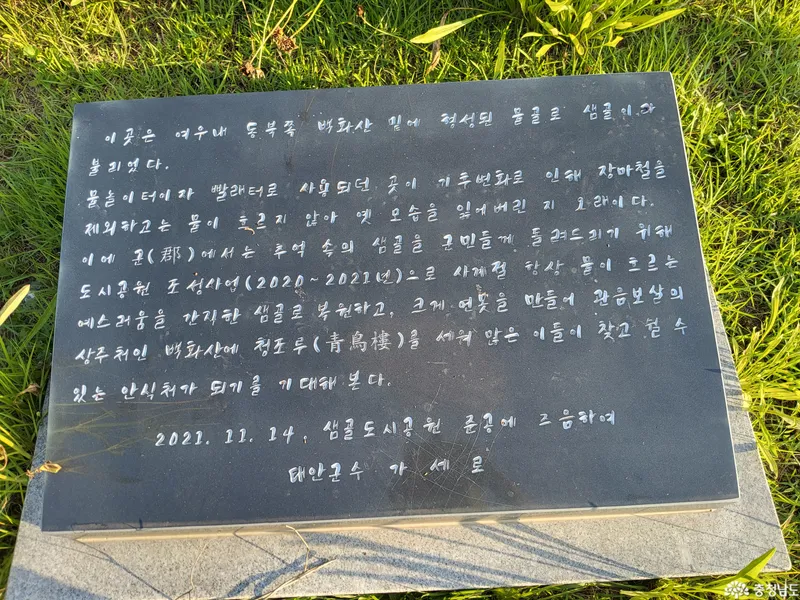 이곳은 여우내 동북쪽 백화산 밑에 형성된 물골로 샘골이라
불리었다.
물놀이터이자 빨래터로 사용되던 곳이 기후변화로 인해 장마철을
제외하고는 물이 흐르지 않아 옛 모습을 잃어버린 지 오래이다.
이에 군(郡)에서는 추억 속의 샘골을 군민들께 돌려드리기 위해
도시공원 조성사업(2020~2021년)으로 사계절 항상 물이 흐르는
예스러움을 간직한 샘골로 복원하고, 크게 연못을 만들어 관음보살의
상주처인 백화산에 청조루(靑鳥樓)를 세워 많은 이들이 찾고 쉴 수
있는 안식처가 되기를 기대해 본다.
2021. 11. 14. 샘골도시공원 준공에 즈음하여
태안군수 가 세 로
충청남도